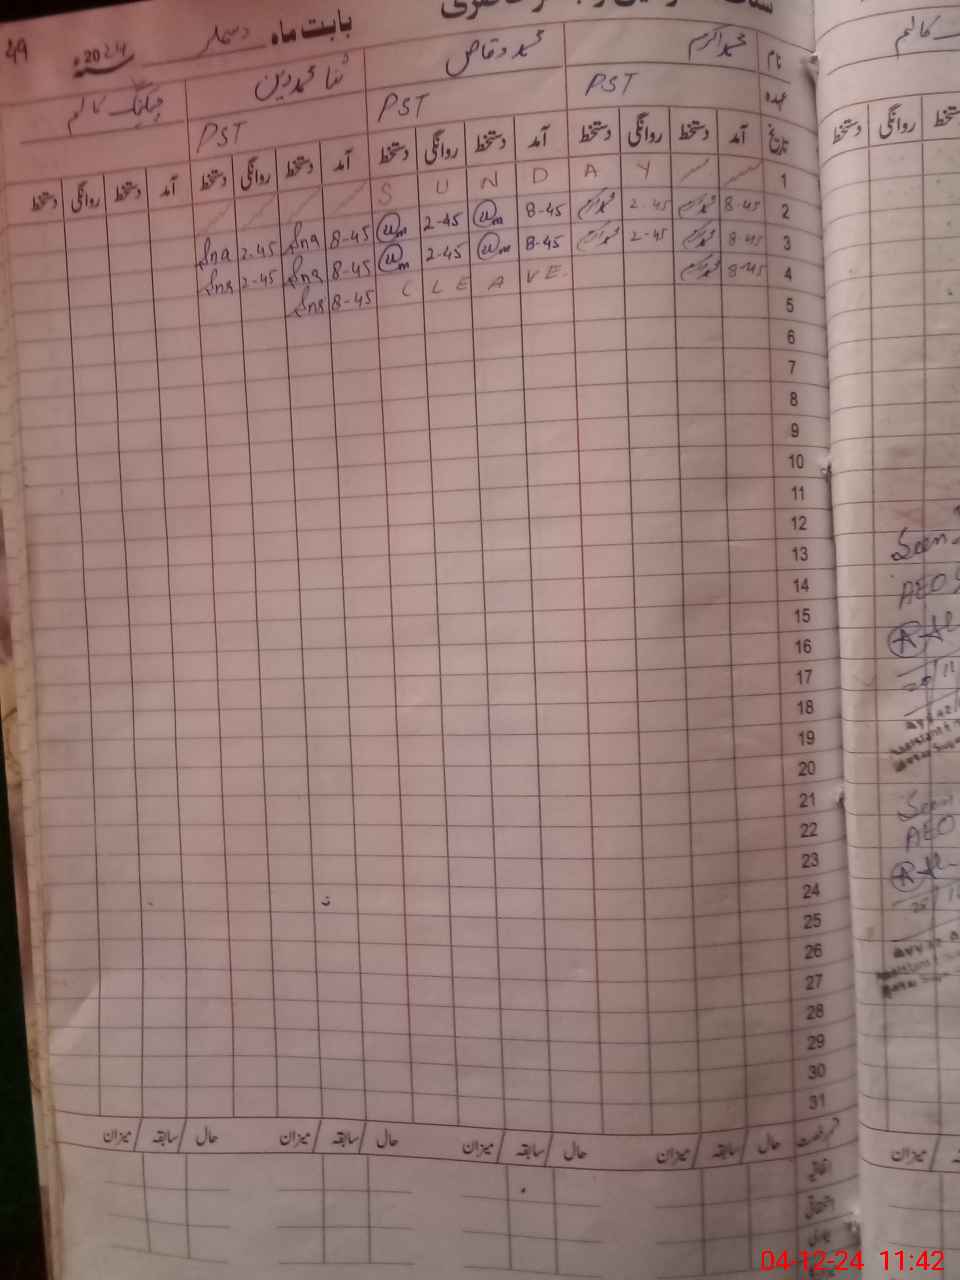 49
بابت ماہ دسمبر 2024ء
نام محمد اکرم محمد وقاص ثنا محمد دین چیکنگ کالم
عہدہ PST PST PST
تاریخ آمد دستخط روانگی دستخط آمد دستخط روانگی دستخط آمد دستخط روانگی دستخط آمد دستخط روانگی دستخط
1 S U N D A Y
2 8-45 2-45 8-45 2-45 8-45 Sna 2-45 Sna
3 8-45 2-45 8-45 2-45 8-45 Sna 2-45 Sna
4 8-45 C LEAVE 8-45 Sna
5
6
7
8
9
10
11
12
13
14
15
16
17
18
19
20
21
22
23
24
25
26
27
28
29
30
31
حال سابقہ میزان حال سابقہ میزان حال سابقہ میزان حال سابقہ میزان
اتفاقیہ
کالم
دستخط روانگی دستخط
Seen
AEO
Seen
AEO
میزان
04-12-24 11:42